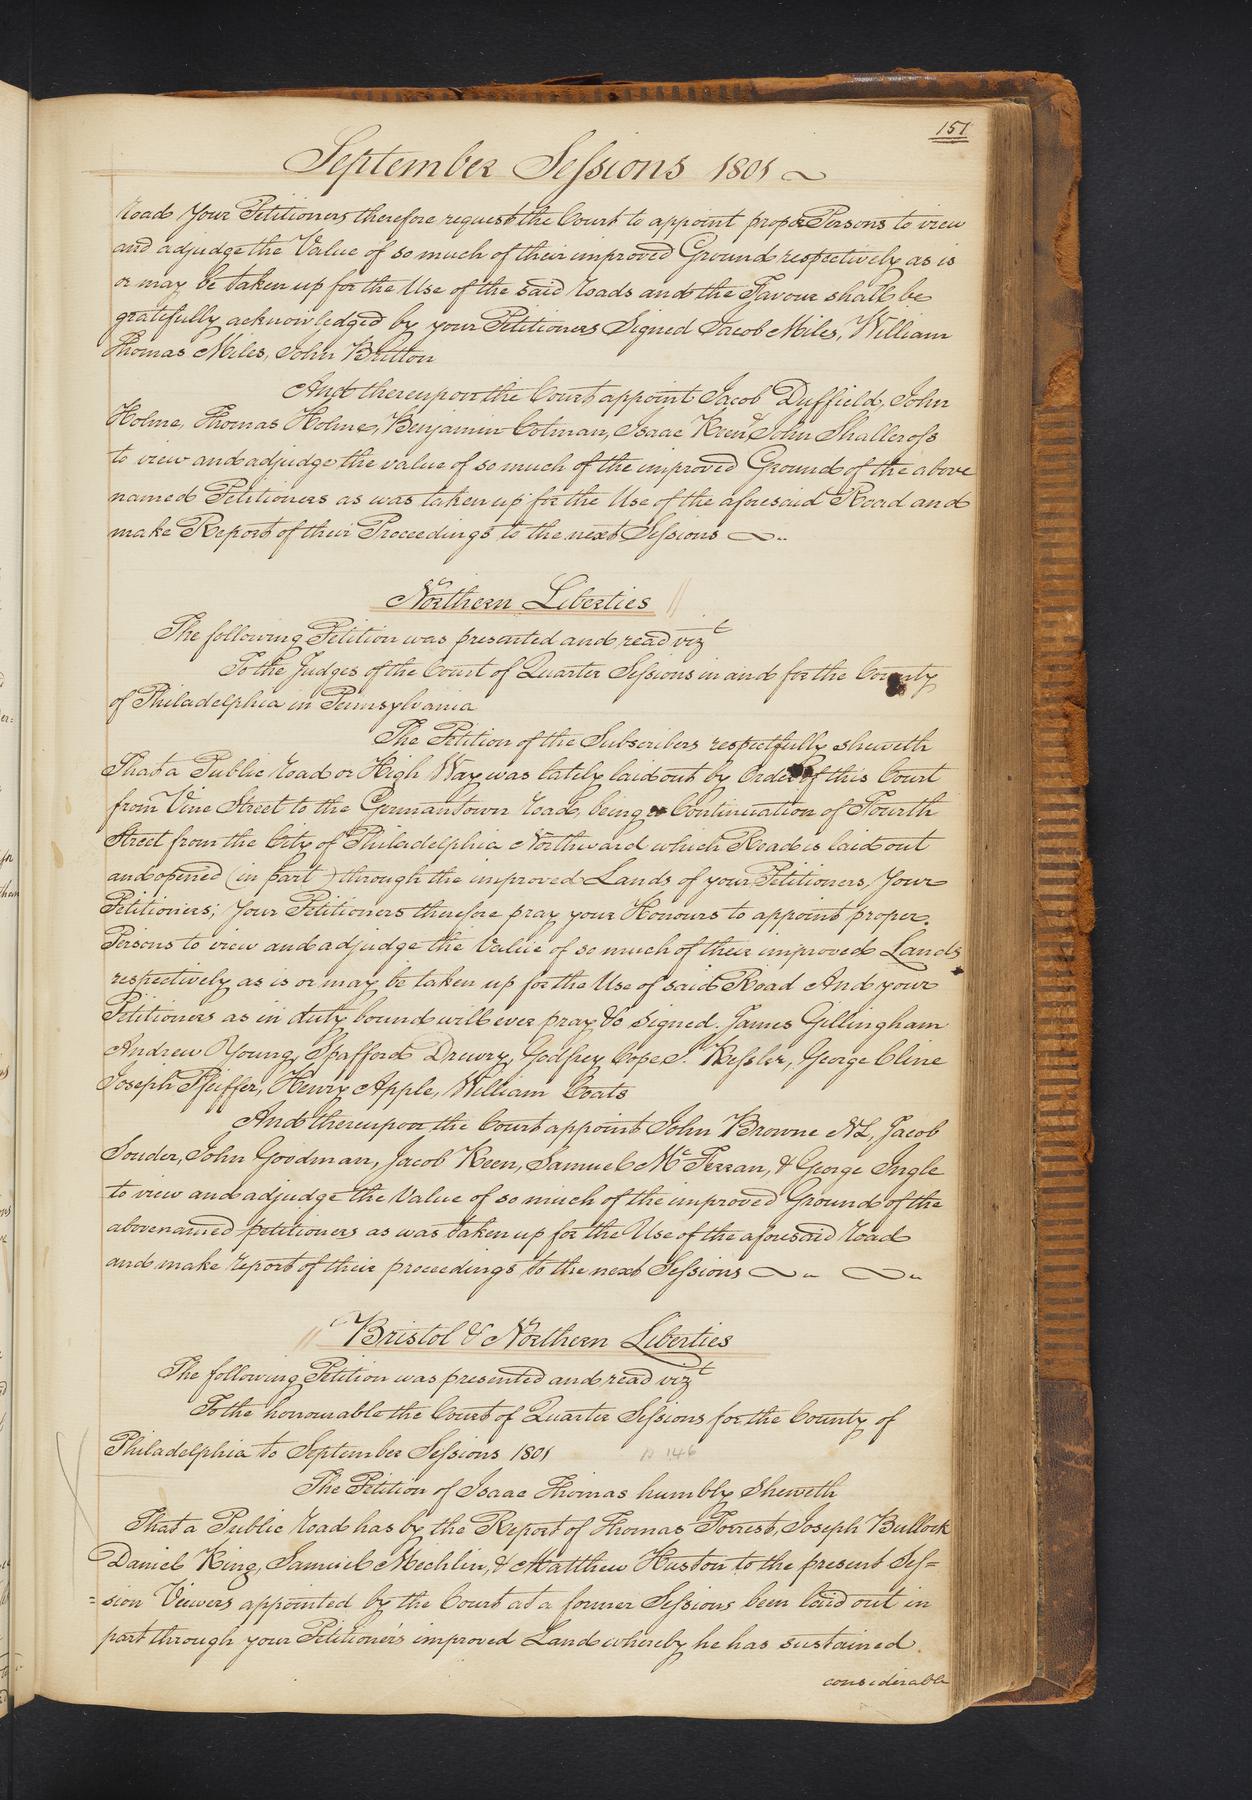 151
September Sessions 1801
road Your Petitioners therefore request the Court to appoint proper Persons to view
and adjudge the Value of so much of their improved Ground respectively as is
or may be taken up for the Use of the said roads and the Favour shall be
gratefully acknowledged by your Petitioners Signed Jacob Miles, William
Thomas Miles, John Britton
And thereupon the Court appoint Jacob Duffield, John
Holme, Thomas Holme, Benjamin Cotman, Isaac Keen & John Shallcross
to view and adjudge the value of so much of the improved Ground of the above
named Petitioners as was taken up for the Use of the aforesaid Road and
make Report of their Proceedings to the next Sessions
Northern Liberties
The following Petition was presented and read vizt
To the Judges of the Court of Quarter Sessions in and for the County
of Philadelphia in Pennsylvania
The Petition of the Subscribers respectfully sheweth
That a Public road or High Way was lately laid out by Order of this Court
from Vine Street to the Germantown road, being a Continuation of Fourth
Street from the City of Philadelphia Northward which Road is laid out
and opened (in part) through the improved Lands of your Petitioners, Your
Petitioners; Your Petitioners therefore pray your Honours to appoint proper
Persons to view and adjudge the Value of so much of their improved Lands
respectively as is or may be taken up for the Use of said Road And your
Petitioners as in duty bound will ever pray &c Signed. James Gillingham
Andrew Young, Spafford Drewry, Godfrey Cope, Kessler, George Cline
Joseph Pfeiffer, Henry Apple, William Coats
And thereupon the Court appoint John Browne NL, Jacob
Souder, John Goodman, Jacob Keen, Samuel Mc Ferran, & George Ingle
to view and adjudge the Value of so much of the improved Ground of the
abovenamed petitioners as was taken up for the Use of the aforesaid road
and make report of their proceedings to the next Sessions
Bristol & Northern Liberties
The following Petition was presented and read vizt
To the honourable the Court of Quarter Sessions for the County of
Philadelphia to September Sessions 1801 p 146
The Petition of Isaac Thomas humbly Sheweth
That a Public road has by the Report of Thomas Forrest, Joseph Bullock
Daniel King, Samuel Mechlin, & Matthew Huston to the present Ses=
=sion Viewers appointed by the Court at a former Sessions been laid out in
part through your Petitioner's improved Land whereby he has sustained
considerable